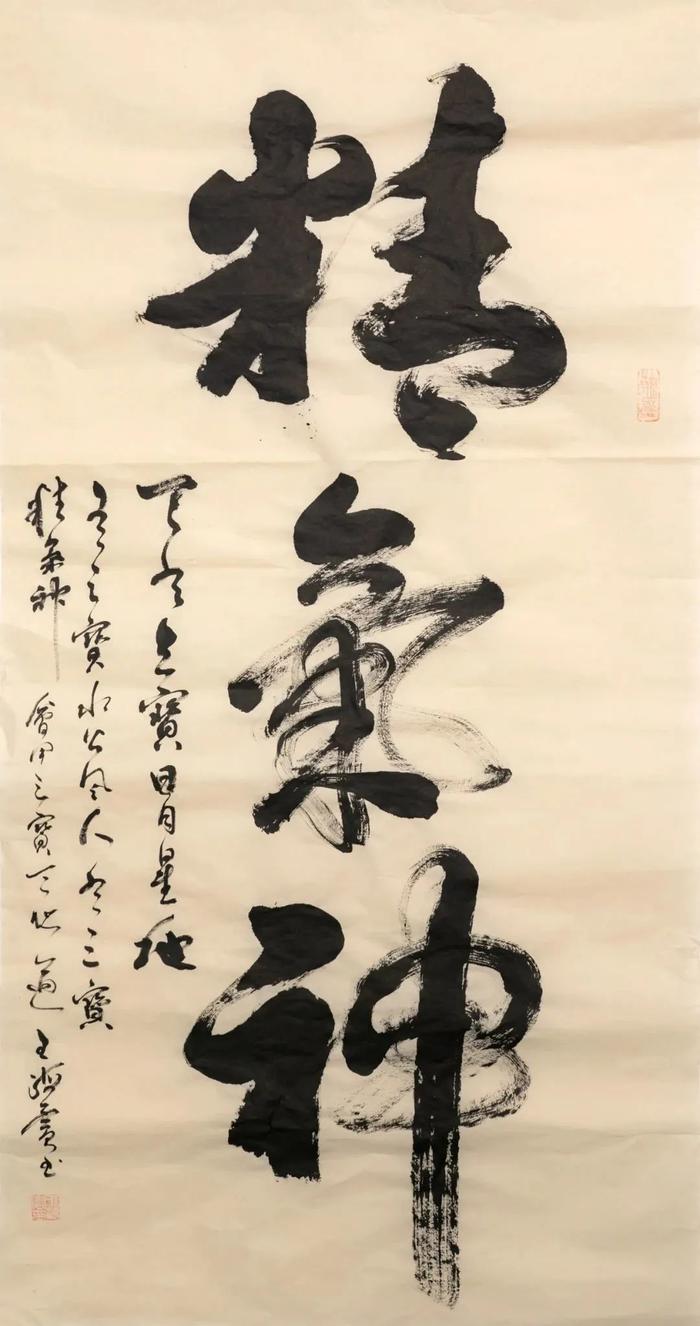 精氣神
天有三寶日月星地
有三寶水火風人有三寶
精氣神 會用三寶天地通 王 書